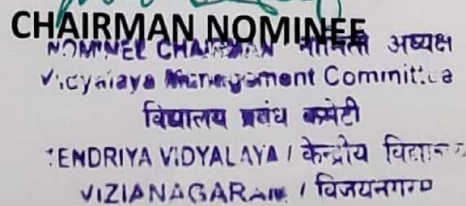 CHAIRMAN NOMINEE
NOMINEE CHAIRMAN नामिती अध्यक्ष
Vidyalaya Management Committee
विद्यालय प्रबंध कमेटी
KENDRIYA VIDYALAYA / केन्द्रीय विद्यालय
VIZIANAGARAM / विजयनगरम